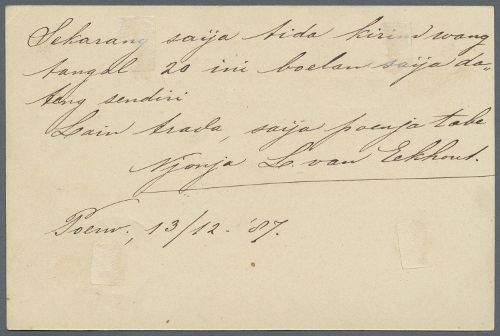 Sekarang saija tida kirim wang
tangal 20 ini boelan saija da„
teng sendiri
Lain trada, saija poenja tabe
Njonja L. van Eekhout.
Poerw., 13/12 - '87.